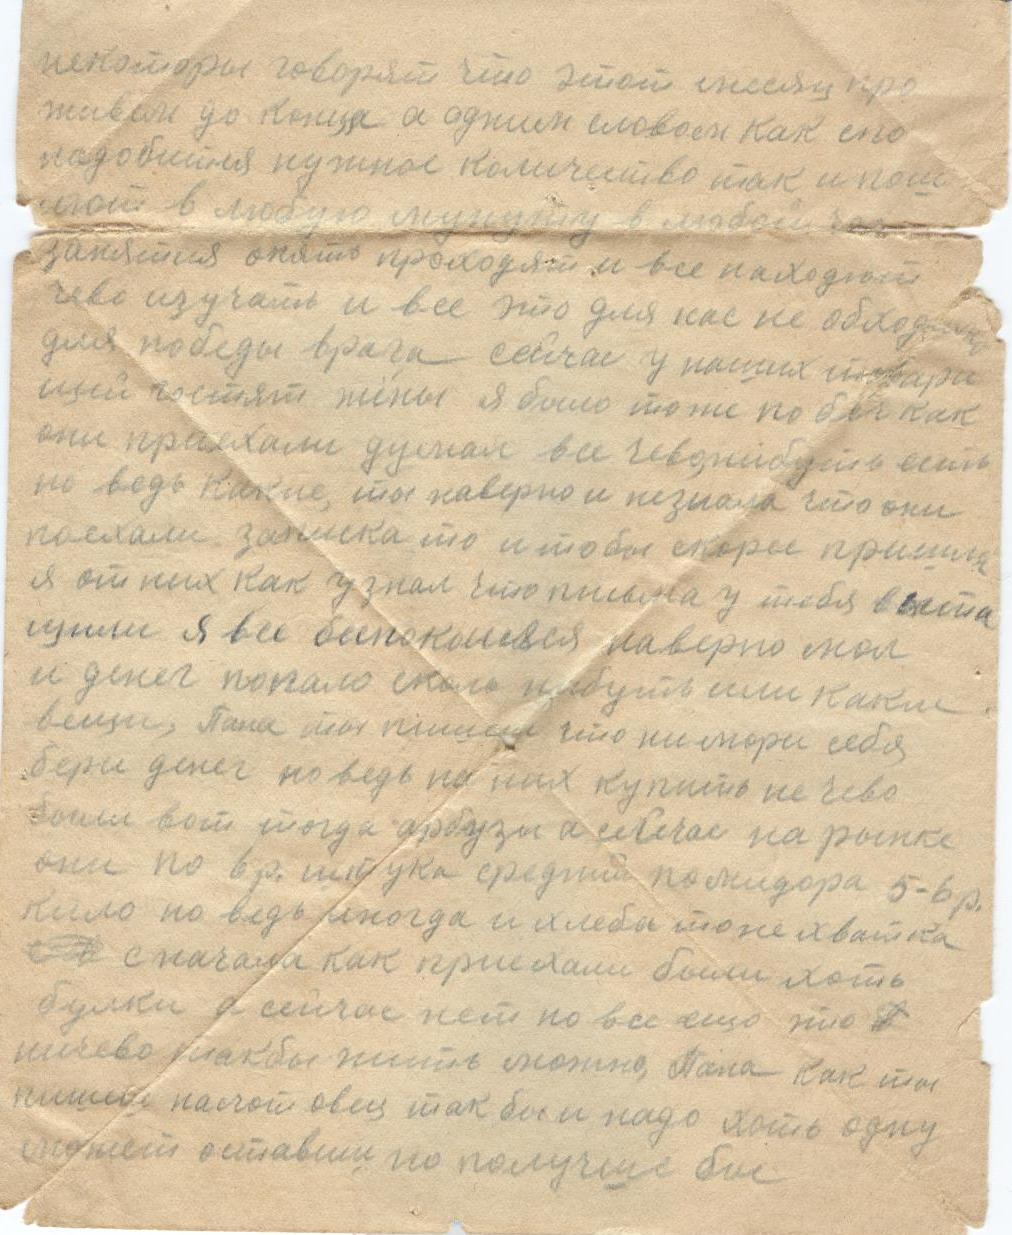 некоторы говорят что этот месяц про
живем до конца а одним словом как спо
надобится нужное количество так и пош
лют в любую мунуту в любой час
занятия опять проходят и все находют
чево изучать и все это для нас не обходимо
для победы врага сейчас у наших товари
щей гостят жёны я было тоже по
они приехали думал все чевонибуть есть
но ведь какие, ты наверно и незнала что они
поехали записка то и тобы скоры пришла
я от них как узнал что письма у тебя выта
щили я все беспокоился наверно мол
и денег попало сколь нибуть или какие
вещи, Папа ты пишеш что ни мори себя
бери денег но ведь на них купить не чево
были вот тогда арбузы а сейчас на рынке
они по р. штука средний помидора 5-6 р.
кило но ведь иногда и хлебы то не хватка
с начала как приехали были хоть
булки а сейчас нет но все ещо это
ничево такбы жить можно, Папа как ты
пишеш насчот овец так бы и надо хоть одну
может оставиш но получше бы